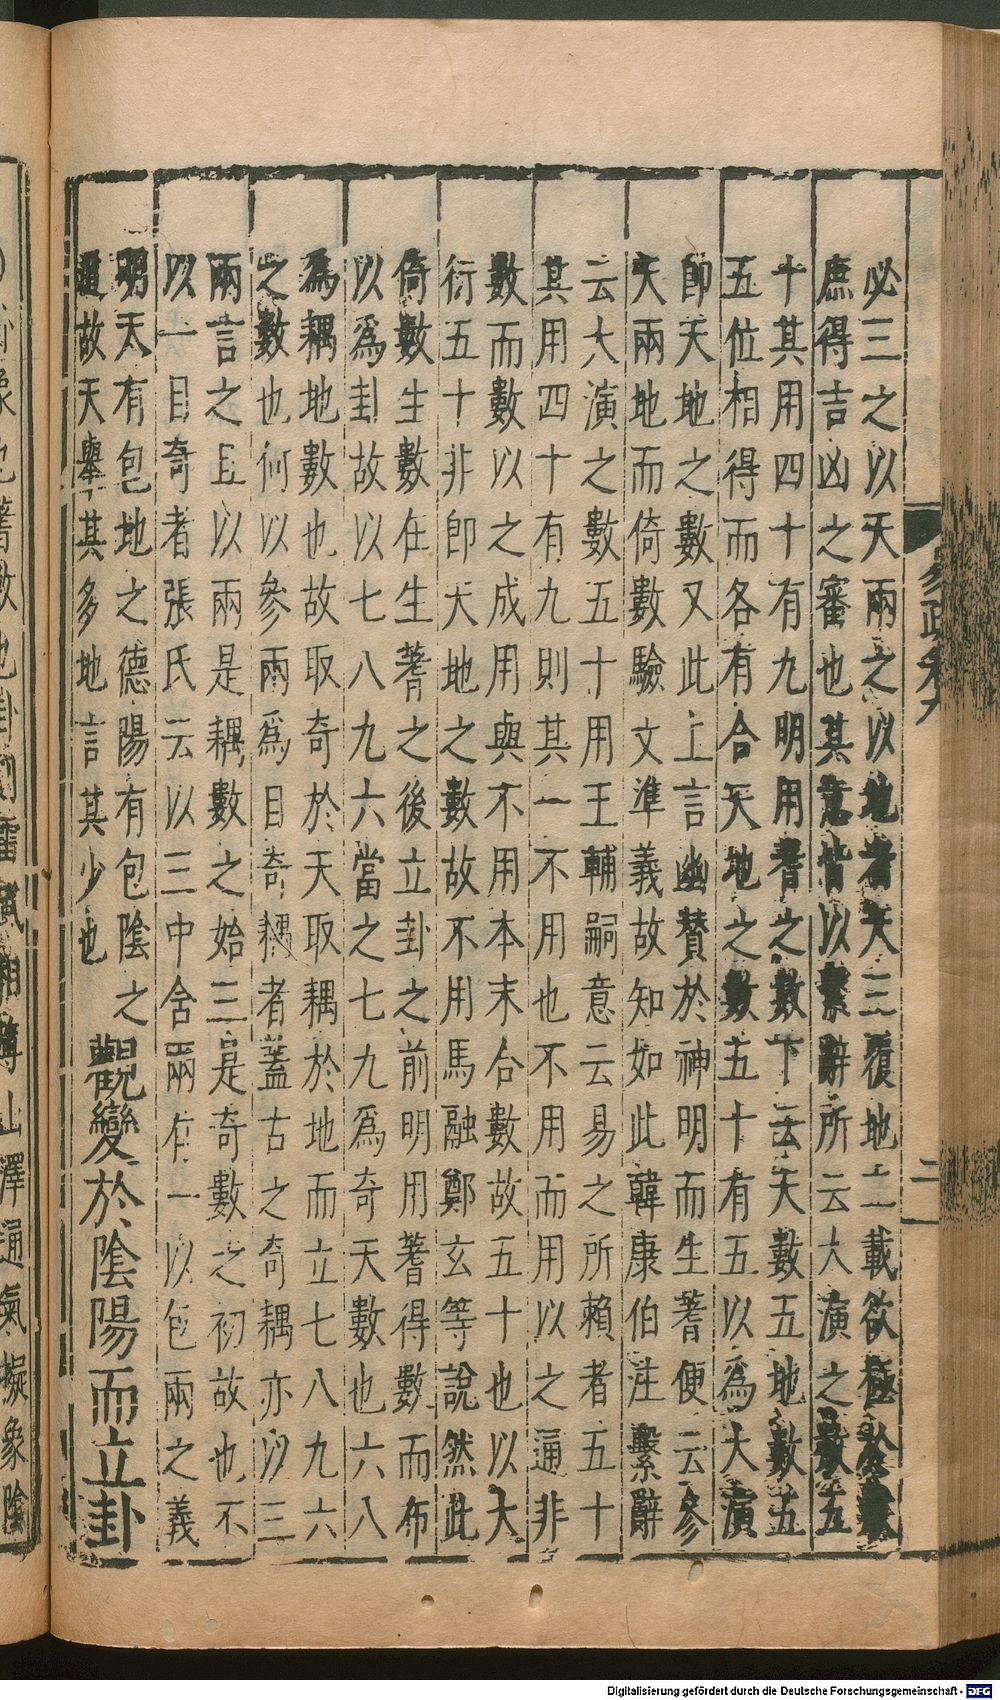 必三之以天兩之以地者天三覆地二載欲極於數
庶得吉凶之審也其意皆以繫辭所云大演之數五
十其用四十有九明用蓍之數下云天數五地數五
五位相得而各有合天地之數五十有五以為大演
即天地之數又此上言幽贊於神明而生蓍便云參
天兩地而倚數驗文準義故知如此韓康伯注繫辭
云大演之數五十用王輔嗣意云易之所賴者五十
其用四十有九則其一不用也不用而用以之通非
數而數以之成用與不用本末合數故五十也以大
衍五十非即天地之數故不用馬融鄭玄等說然此
倚數生數在生蓍之後立卦之前明用蓍得數而布
以爲卦故以七八九六當之七九爲奇天數也六八
爲耦地數也故取奇於天取耦於地而立七八九六
之數也何以參兩爲目奇耦者蓋古之奇耦亦以三
兩言之且以兩是耦數之始三是奇數之初故也不
以一目奇者張氏云以三中含兩有一以包兩之義
明天有包地之德陽有包陰之
道故天舉其多地言其少也
觀變於陰陽而立卦
易疏卷九
二
澤通氣擬象陰
Digitalisierung gefördert durch die Deutsche Forschungsgemeinschaft - DFG